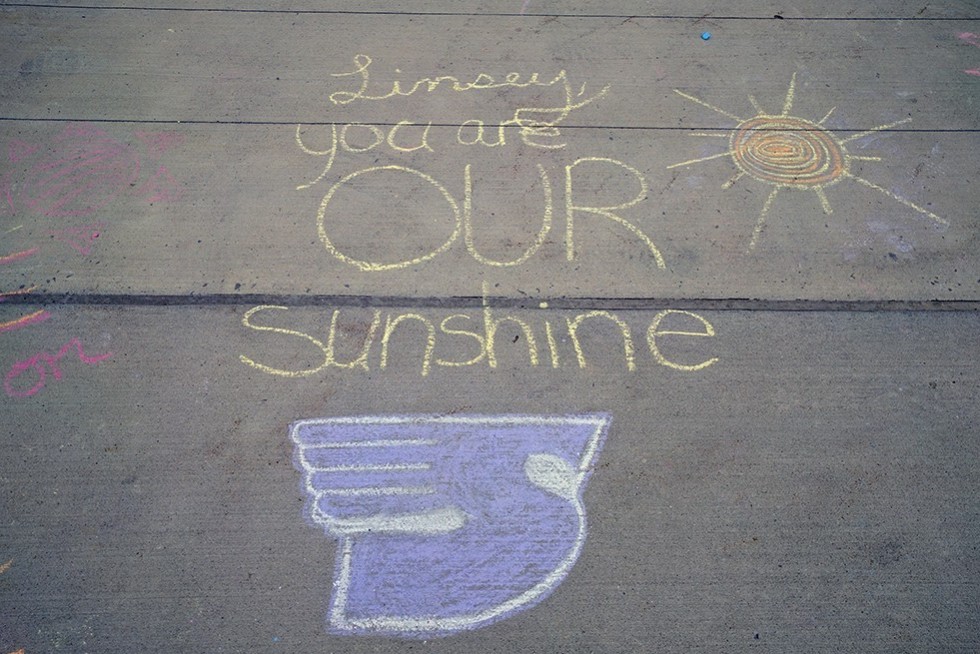 Limsey,
you are
OUR
sunshine
or